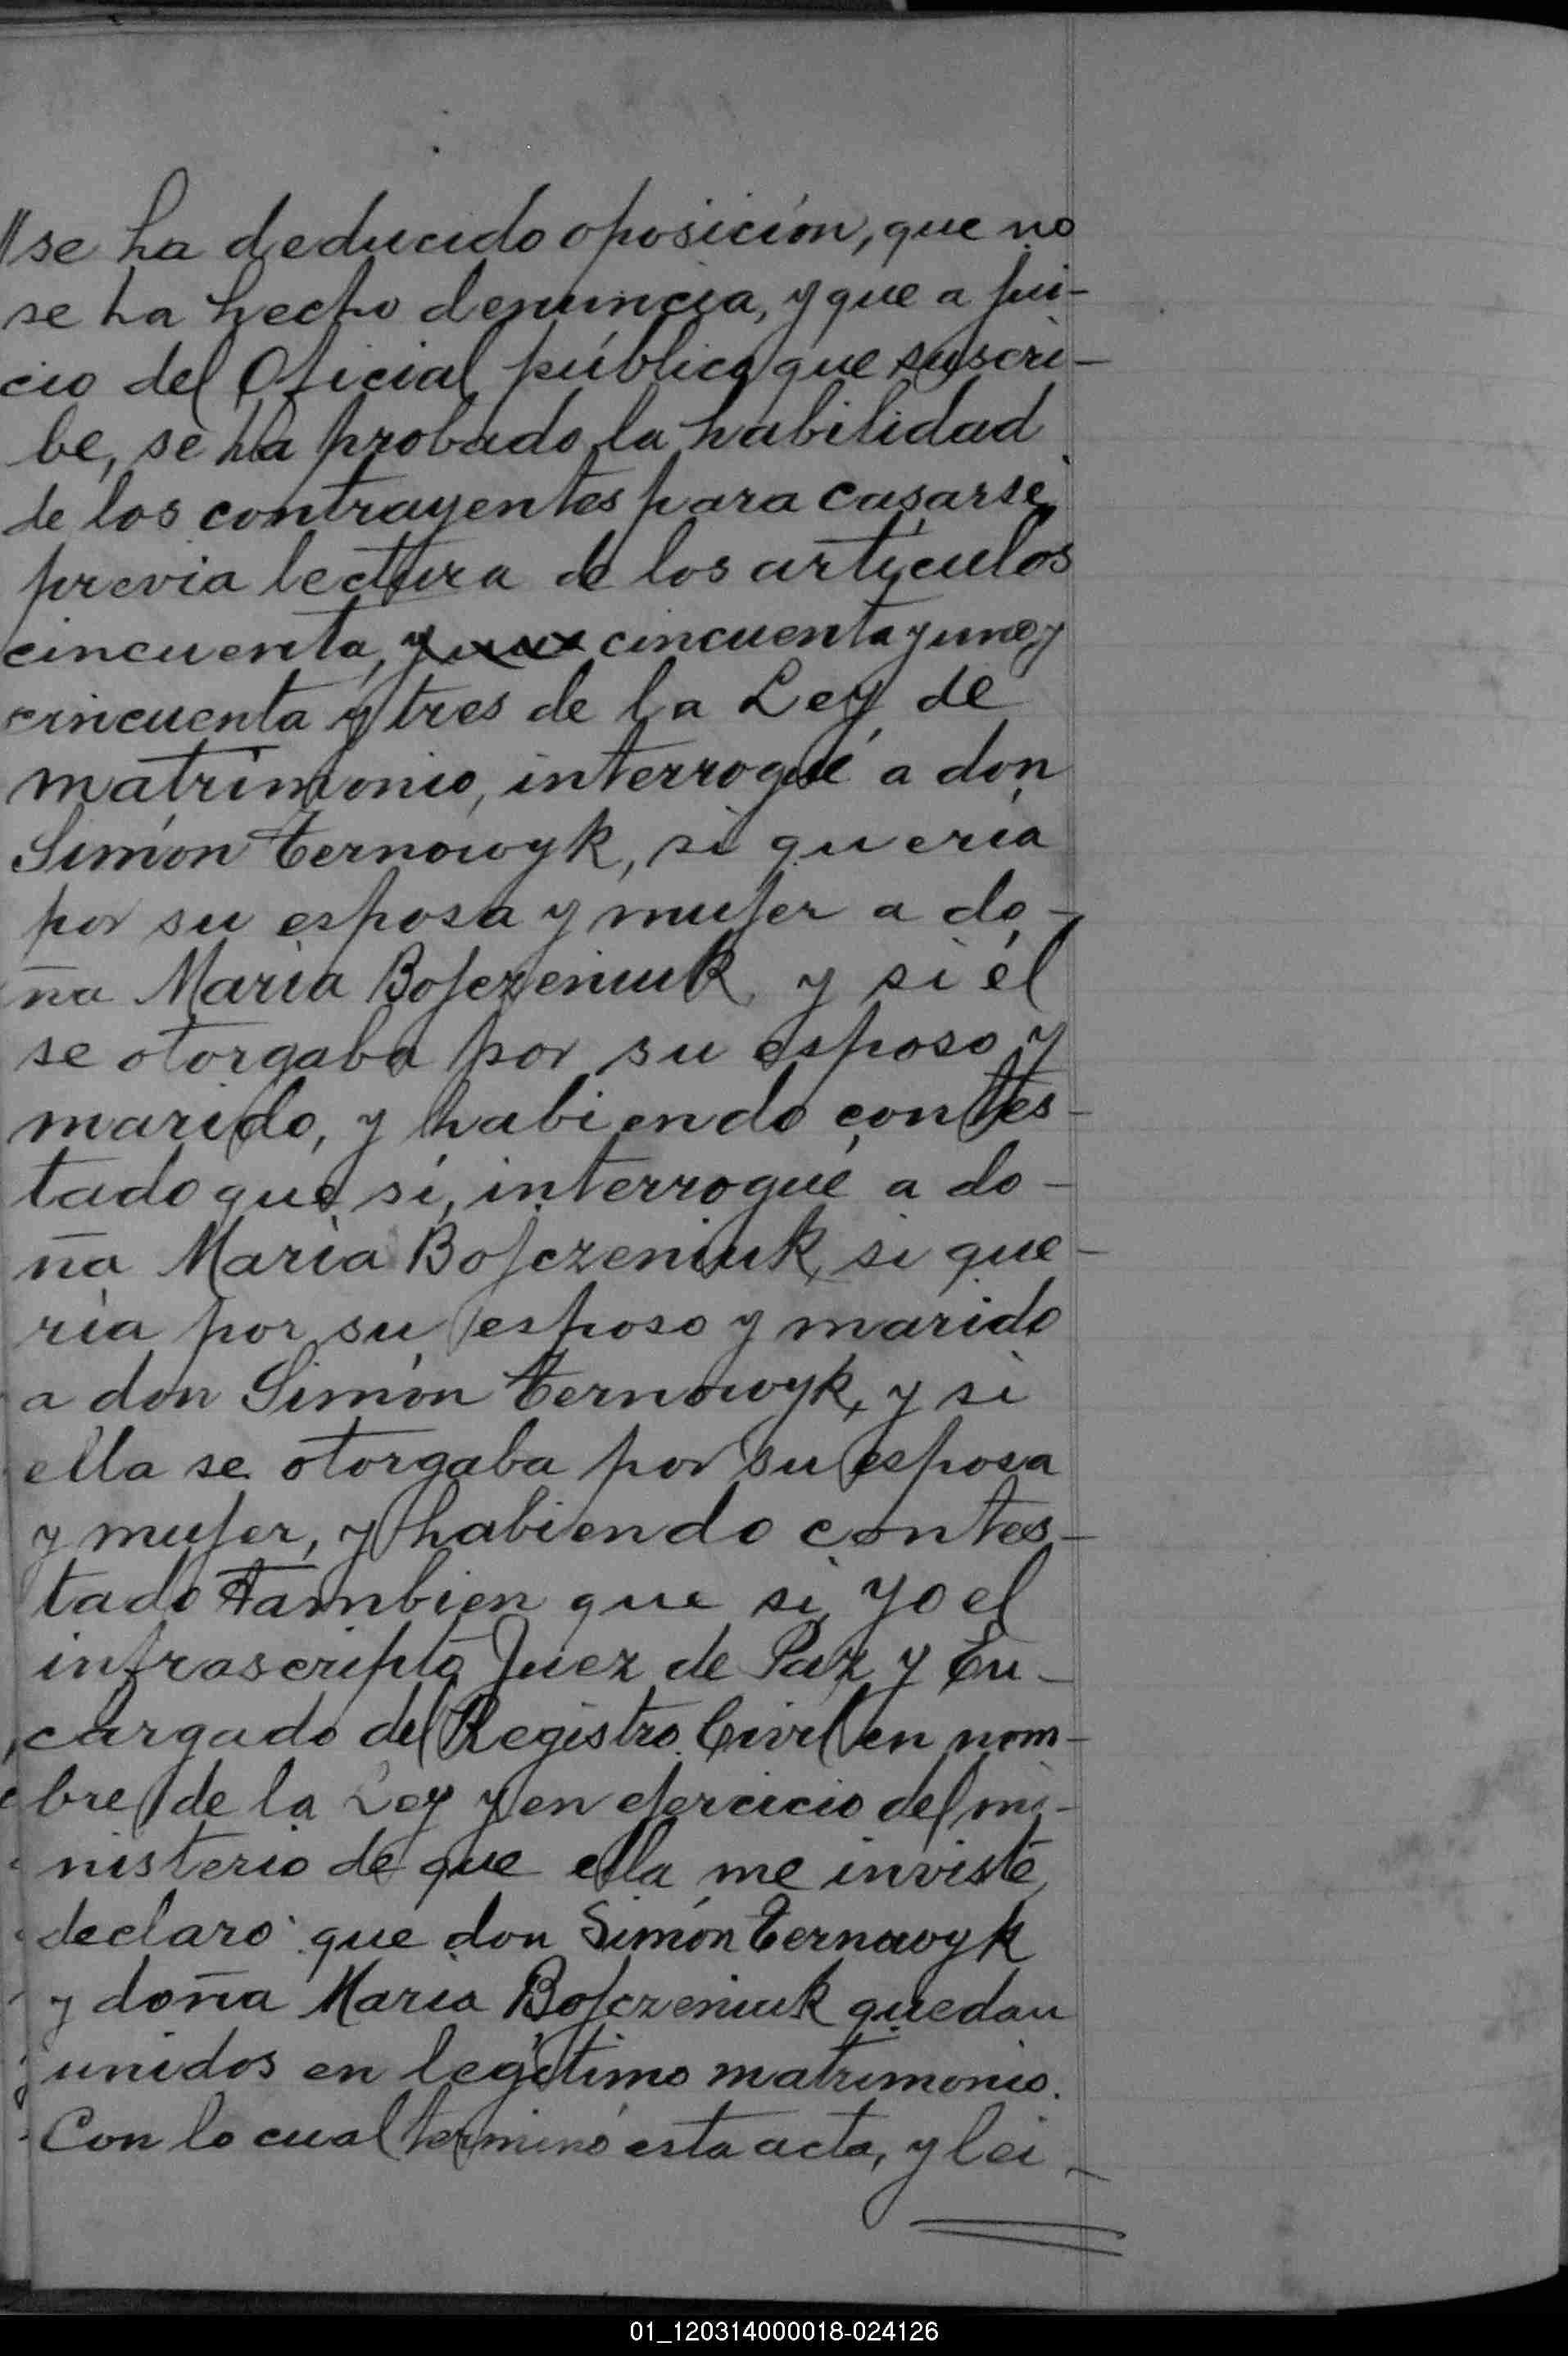 //se ha deducido oposición, que no
se ha hecho denuncia, y que a jui-
cio del Oficial público que suscri-
be, se ha probado la habilidad
de los contrayentes para casarse,
previa lectura de los artículos
cincuenta, y uno cincuenta y uno, y
cincuenta y tres de la Ley de
matrimonio, interrogué a don
Simón Ternowyk, si quería
por su esposa y mujer a do-
ña María Bojczeniuk y si él
se otorgaba por su esposo y
marido, y habiendo contes-
tado que sí, interrogué a do-
ña María Bojczeniuk, si que-
ría por su esposo y marido
a don Simón Ternowyk, y si
ella se otorgaba por su esposa
y mujer, y habiendo contes-
tado tambien que si, yo el
infrascripto Juez de Paz y En-
cargado del Registro Civil en nom-
bre de la Ley y en ejercicio del mi-
nisterio de que ella me inviste,
declaro que don Simón Ternowyk
y doña María Bojczeniuk quedan
unidos en legítimo matrimonio.
Con lo cual terminó esta acta, y lei-
01_120314000018-024126